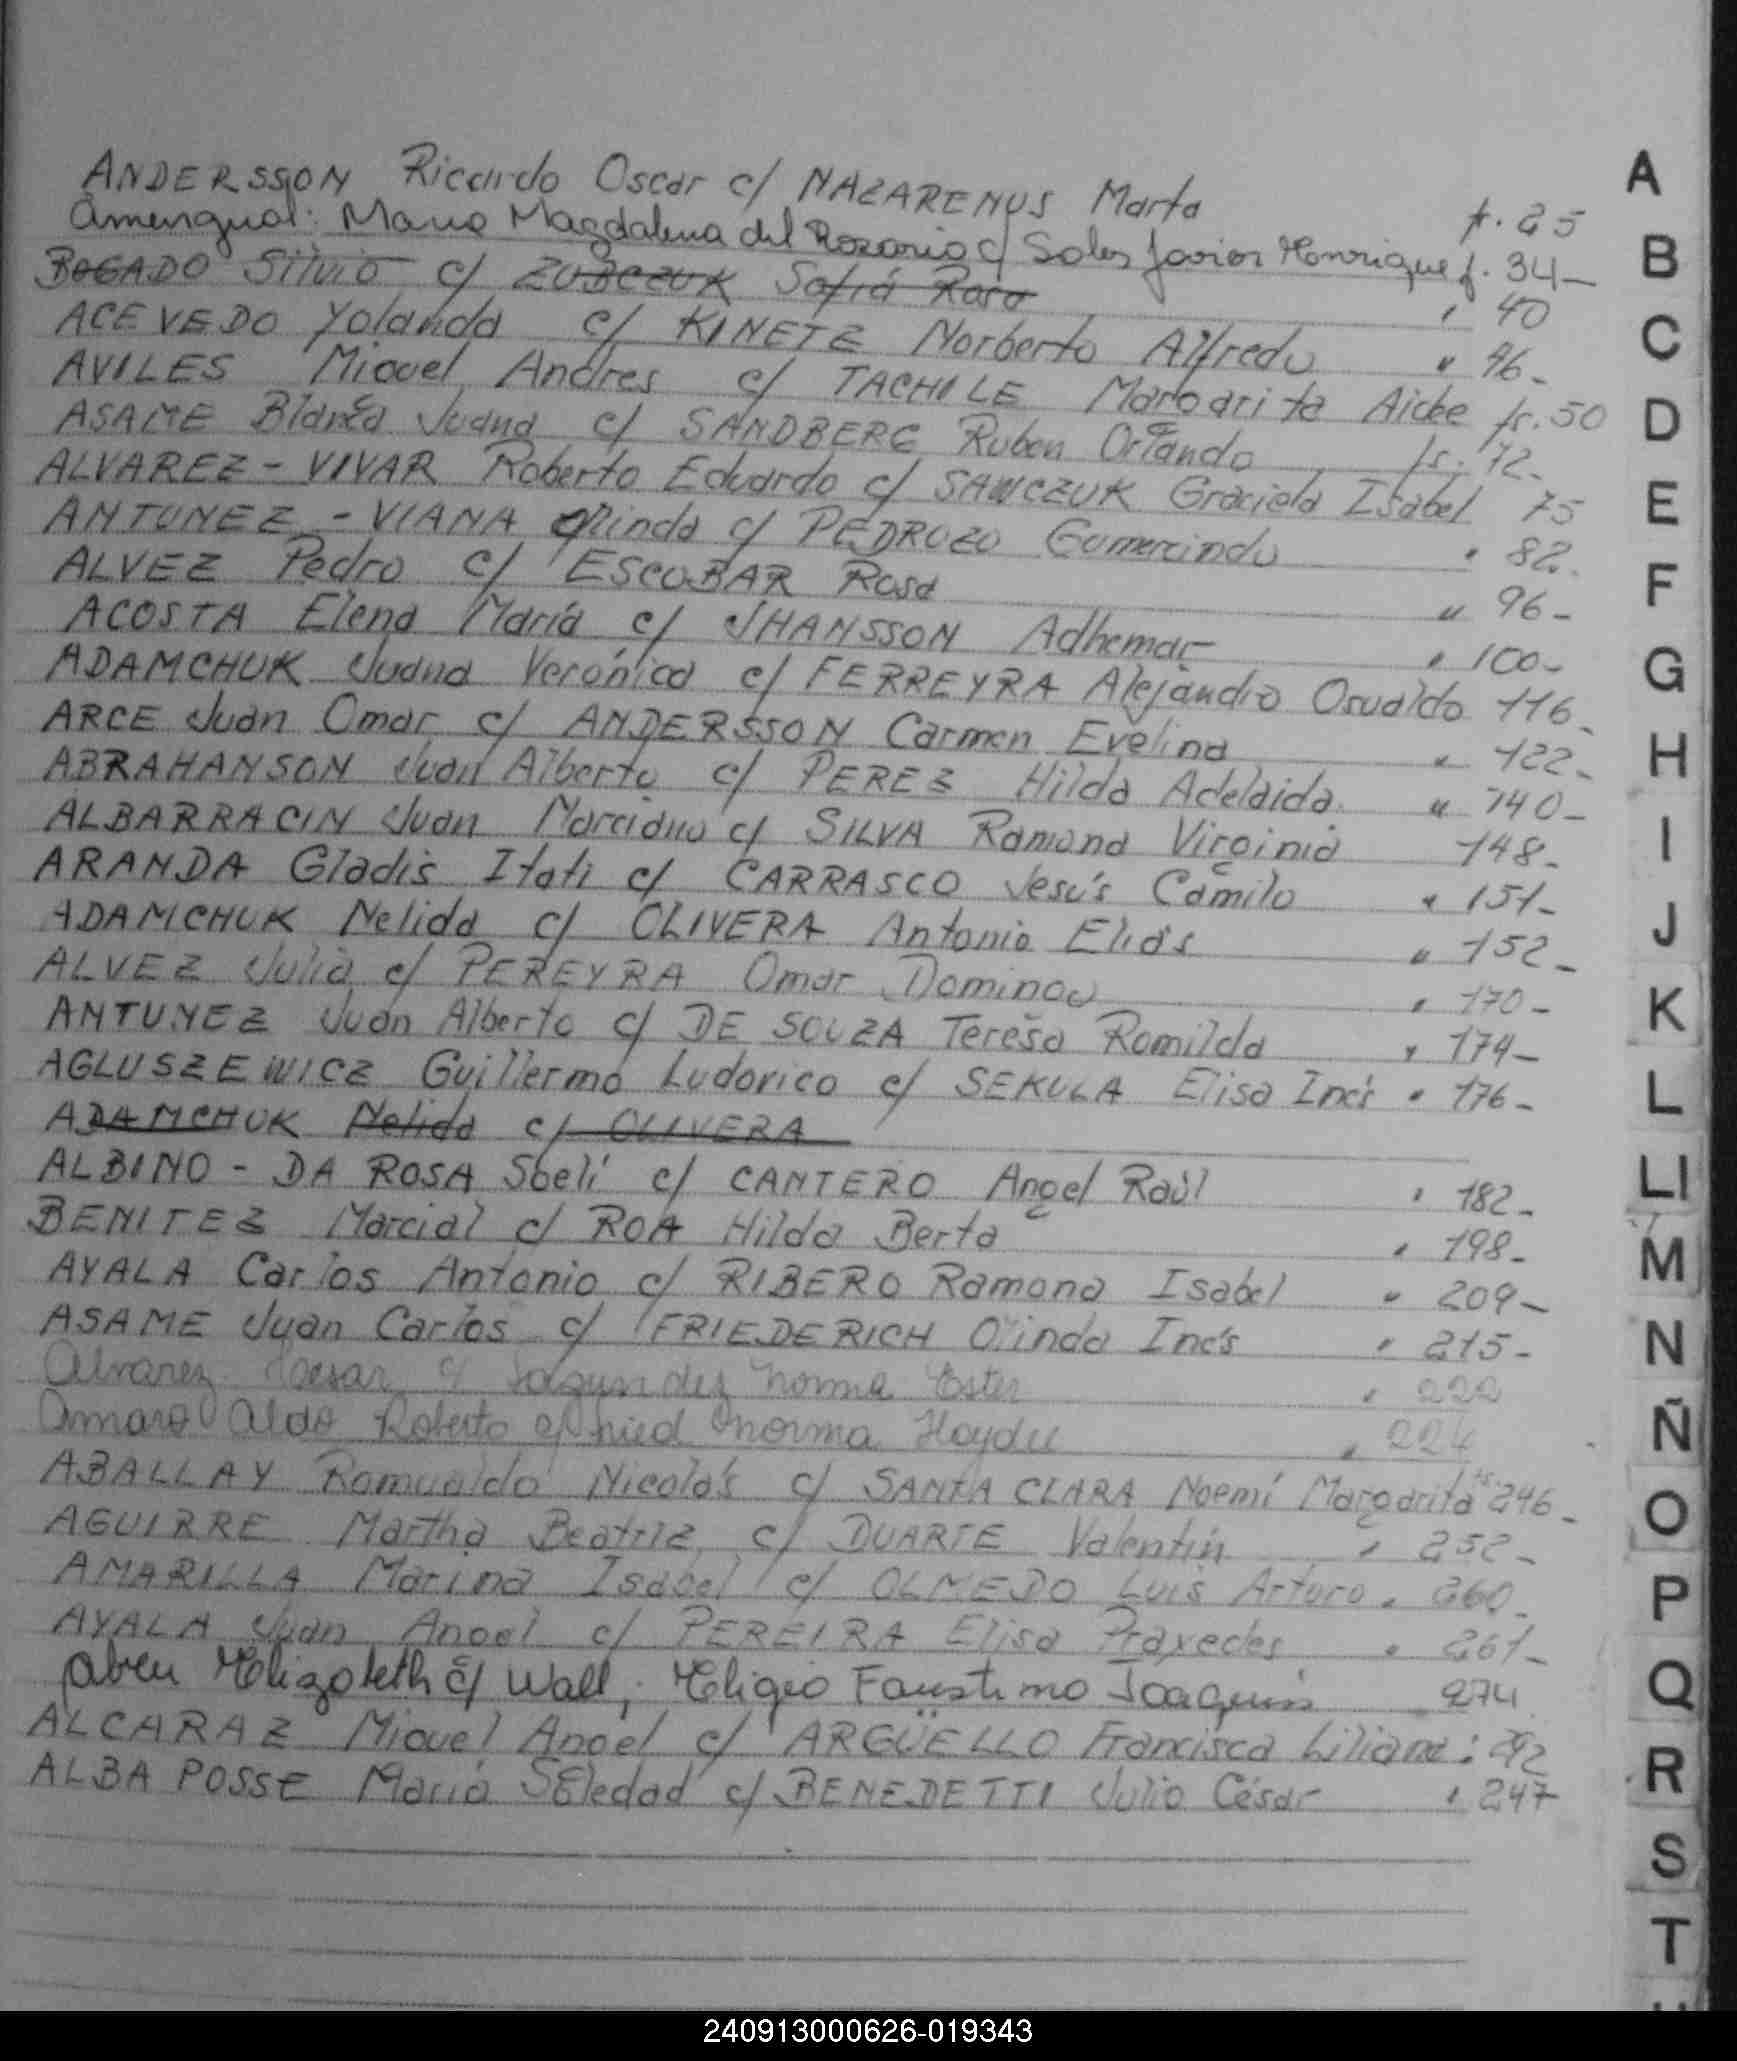 ANDERSSON Ricardo Oscar c/ NAZARENUS Marta f. 25
Amengual: Maria Magdalena del Rozario c/ Soles Javier Henrique f. 34-
BOGADO Silvio c/ ZUBCZUK Safia Rosa " 40
ACEVEDO Yolanda c/ KINETZ Norberto Alfredo " 46-
AVILES Miguel Andres c/ TACHILE Margarita Aidee fs. 50
ASAME Blanca Juana c/ SANDBERG Ruben Orlando fs. 72-
ALVAREZ - VIVAR Roberto Eduardo c/ SAWCZUK Graciela Isabel 75
ANTUNEZ - VIANA Olinda c/ PEDROZO Gumercindo " 82.
ALVEZ Pedro c/ ESCOBAR Rosa " 96-
ACOSTA Elena María c/ JHANSSON Adhemar " 100-
ADAMCHUK Juana Verónica c/ FERREYRA Alejandro Osvaldo 116-
ARCE Juan Omar c/ ANDERSSON Carmen Evelina " 122-
ABRAHANSON Juan Alberto c/ PEREZ Hilda Adelaida " 140-
ALBARRACIN Juan Marciano c/ SILVA Ramona Virginia 148-
ARANDA Gladis Itati c/ CARRASCO Jesús Camilo " 151-
ADAMCHUK Nelida c/ OLIVERA Antonio Elías " 152-
ALVEZ Julia c/ PEREYRA Omar Domingo " 170-
ANTUNEZ Juan Alberto c/ DE SOUZA Teresa Romilda " 174-
AGLUSZEWICZ Guillermo Ludovico c/ SEKULA Elisa Inés " 176-
ADAMCHUK Nelida c/ OLIVERA
ALBINO - DA ROSA Sbeli c/ CANTERO Angel Raúl " 182-
BENITEZ Marcial c/ ROA Hilda Berta " 198-
AYALA Carlos Antonio c/ RIBERO Ramona Isabel " 209-
ASAME Juan Carlos c/ FRIEDERICH Olinda Inés " 215-
Alvarez Cesar c/ Fagundez Norma Ester " 222
Amaro Aldo Roberto c/ Norma Haydee " 224
ABALLAY Romualdo Nicolás c/ SANTA CLARA Noemí Margarita fs. 246-
AGUIRRE Martha Beatriz c/ DUARTE Valentín " 252-
AMARILLA Marina Isabel c/ OLMEDO Luis Arturo " 260-
AYALA Juan Angel c/ PEREIRA Elisa Praxedes " 261-
Abreu Elizabeth c/ Wall, Eligio Faustino Joaquin 274
ALCARAZ Miguel Angel c/ ARGÜELLO Francisca Liliana : 292
ALBA POSSE María Soledad c/ BENEDETTI Julio César " 247
A
B
C
D
E
F
G
H
I
J
K
L
Ll
M
N
Ñ
O
P
Q
R
S
T
240913000626-019343